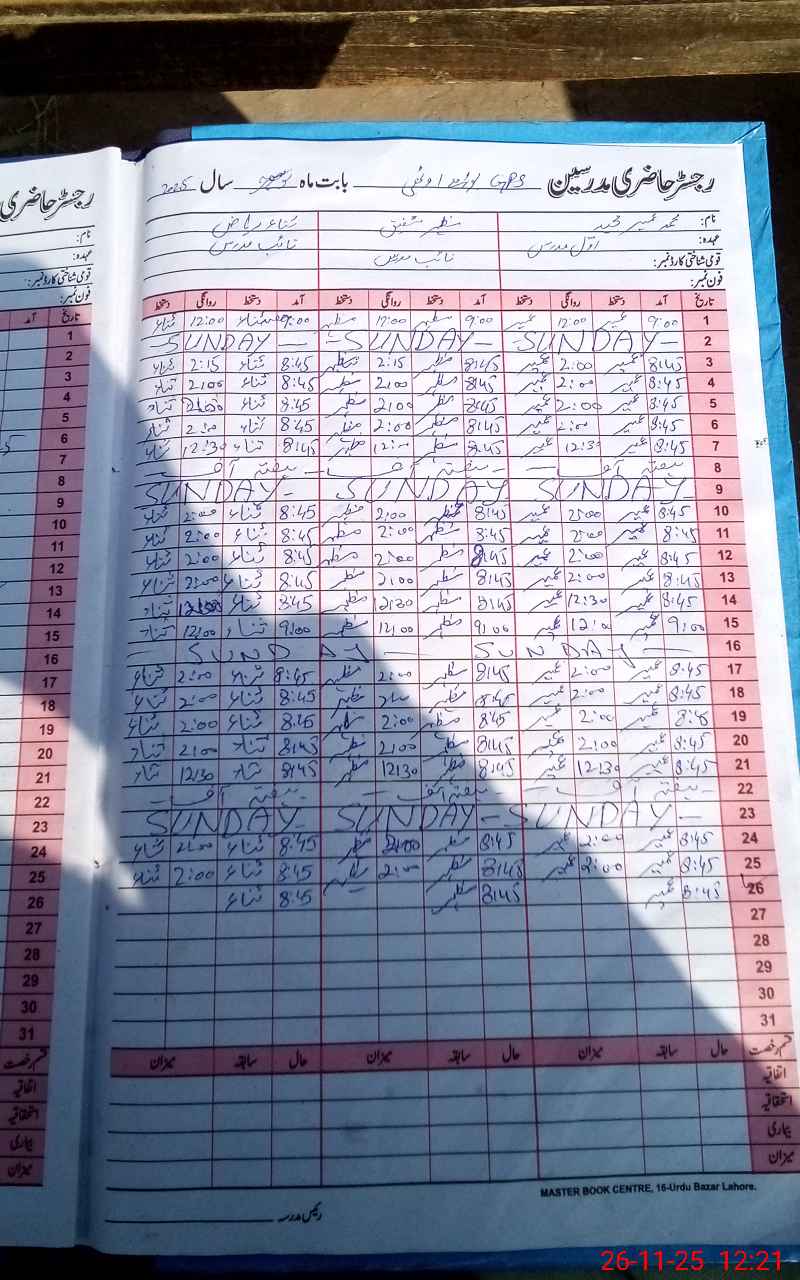 رجسٹر حاضری مدرسین GPS بابت ماہ نومبر سال 2025
نام: محمد عمیر حمید مظہر شفیق ثناء ریاض
عہدہ: اوّل مدرس نائب مدرس نائب مدرس
قومی شناختی کارڈ نمبر:
فون نمبر:
تاریخ آمد دستخط روانگی دستخط آمد دستخط روانگی دستخط آمد دستخط روانگی دستخط
1 9:00 عمیر 12:00 عمیر 9:00 مظہر 12:00 مظہر 9:00 ثناء 12:00 ثناء
2 -SUNDAY- -SUNDAY- -SUNDAY-
3 8:45 عمیر 2:00 عمیر 8:45 مظہر 2:15 مظہر 8:45 ثناء 2:15 ثناء
4 8:45 عمیر 2:00 عمیر 8:45 مظہر 2:00 مظہر 8:45 ثناء 2:00 ثناء
5 8:45 عمیر 2:00 عمیر 8:45 مظہر 2:00 مظہر 8:45 ثناء 2:00 ثناء
6 8:45 عمیر 2:00 عمیر 8:45 مظہر 2:00 مظہر 8:45 ثناء 2:00 ثناء
7 8:45 عمیر 12:30 عمیر 8:45 مظہر مظہر 8:45 ثناء 12:30 ثناء
8 ہفتہ آف ہفتہ آف ہفتہ آف
9 SUNDAY- SUNDAY- SUNDAY-
10 8:45 عمیر 2:00 عمیر 8:45 مظہر 2:00 مظہر 8:45 ثناء 2:00 ثناء
11 8:45 عمیر 2:00 عمیر 8:45 مظہر 2:00 مظہر 8:45 ثناء 2:00 ثناء
12 8:45 عمیر 2:00 عمیر 8:45 مظہر 2:00 مظہر 8:45 ثناء 2:00 ثناء
13 8:45 عمیر 2:00 عمیر 8:45 مظہر 2:00 مظہر 8:45 ثناء 2:00 ثناء
14 8:45 عمیر 12:30 عمیر 8:45 مظہر 12:30 مظہر 8:45 ثناء ثناء
15 9:00 عمیر 12:00 عمیر 9:00 مظہر 12:00 مظہر 9:00 ثناء 12:00 ثناء
16 — SUNDAY — SUNDAY —
17 8:45 عمیر 2:00 عمیر 8:45 مظہر 2:00 مظہر 8:45 ثناء 2:00 ثناء
18 8:45 عمیر 2:00 عمیر 8:45 مظہر مظہر 8:45 ثناء 2:00 ثناء
19 عمیر 2:00 عمیر 8:45 مظہر 2:00 مظہر 8:45 ثناء 2:00 ثناء
20 8:45 عمیر 2:00 عمیر 8:45 مظہر 2:00 مظہر 8:45 ثناء 2:00 ثناء
21 8:45 عمیر 12:30 عمیر 8:45 مظہر 12:30 مظہر 8:45 ثناء 12:30 ثناء
22 ہفتہ آف ہفتہ آف ہفتہ آف
23 SUNDAY- SUNDAY- SUNDAY-
24 8:45 عمیر 2:00 عمیر 8:45 مظہر 2:00 مظہر 8:45 ثناء 2:00 ثناء
25 8:45 عمیر 2:00 عمیر 8:45 مظہر 2:00 مظہر 8:45 ثناء 2:00 ثناء
26 8:45 عمیر 8:45 مظہر 8:45 ثناء
27
28
29
30
31
قسم رخصت حال سابقہ میزان حال سابقہ میزان حال سابقہ میزان
اتفاقیہ
استحقاقیہ
بیماری
میزان
MASTER BOOK CENTRE, 16-Urdu Bazar Lahore.
رئیس مدرسہ
رجسٹر حاضری
نام:
عہدہ:
قومی شناختی کارڈ نمبر:
فون نمبر:
تاریخ آمد
1
2
3
4
5
6
7
8
9
10
11
12
13
14
15
16
17
18
19
20
21
22
23
24
25
26
27
28
29
30
31
قسم رخصت
اتفاقیہ
استحقاقیہ
بیماری
میزان
26-11-25 12:21